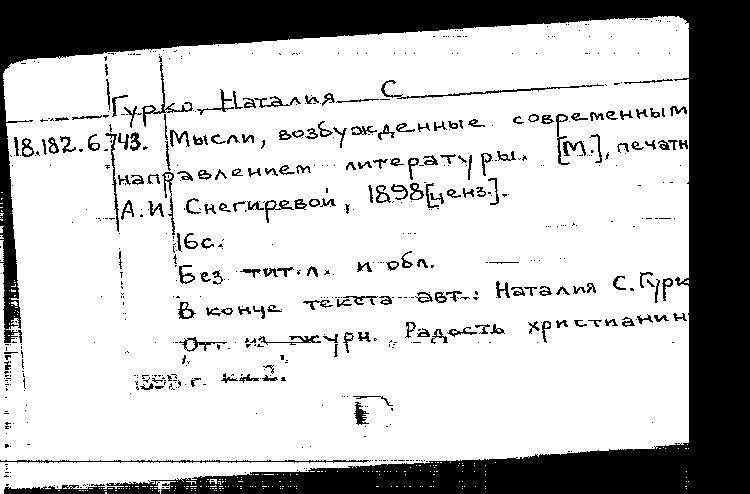 Гурко, Наталия С
18.182.6.743. Мысли, возбужденные современным
направлением литературы. [М.], печатн
А.И. Снегиревой, 1898[ценз.].
16с.
Без тит.л. и обл.
В конце текста авт.: Наталия С. Гурк
Отт. из журн. „Радость христианин
1898 г. кн.2.